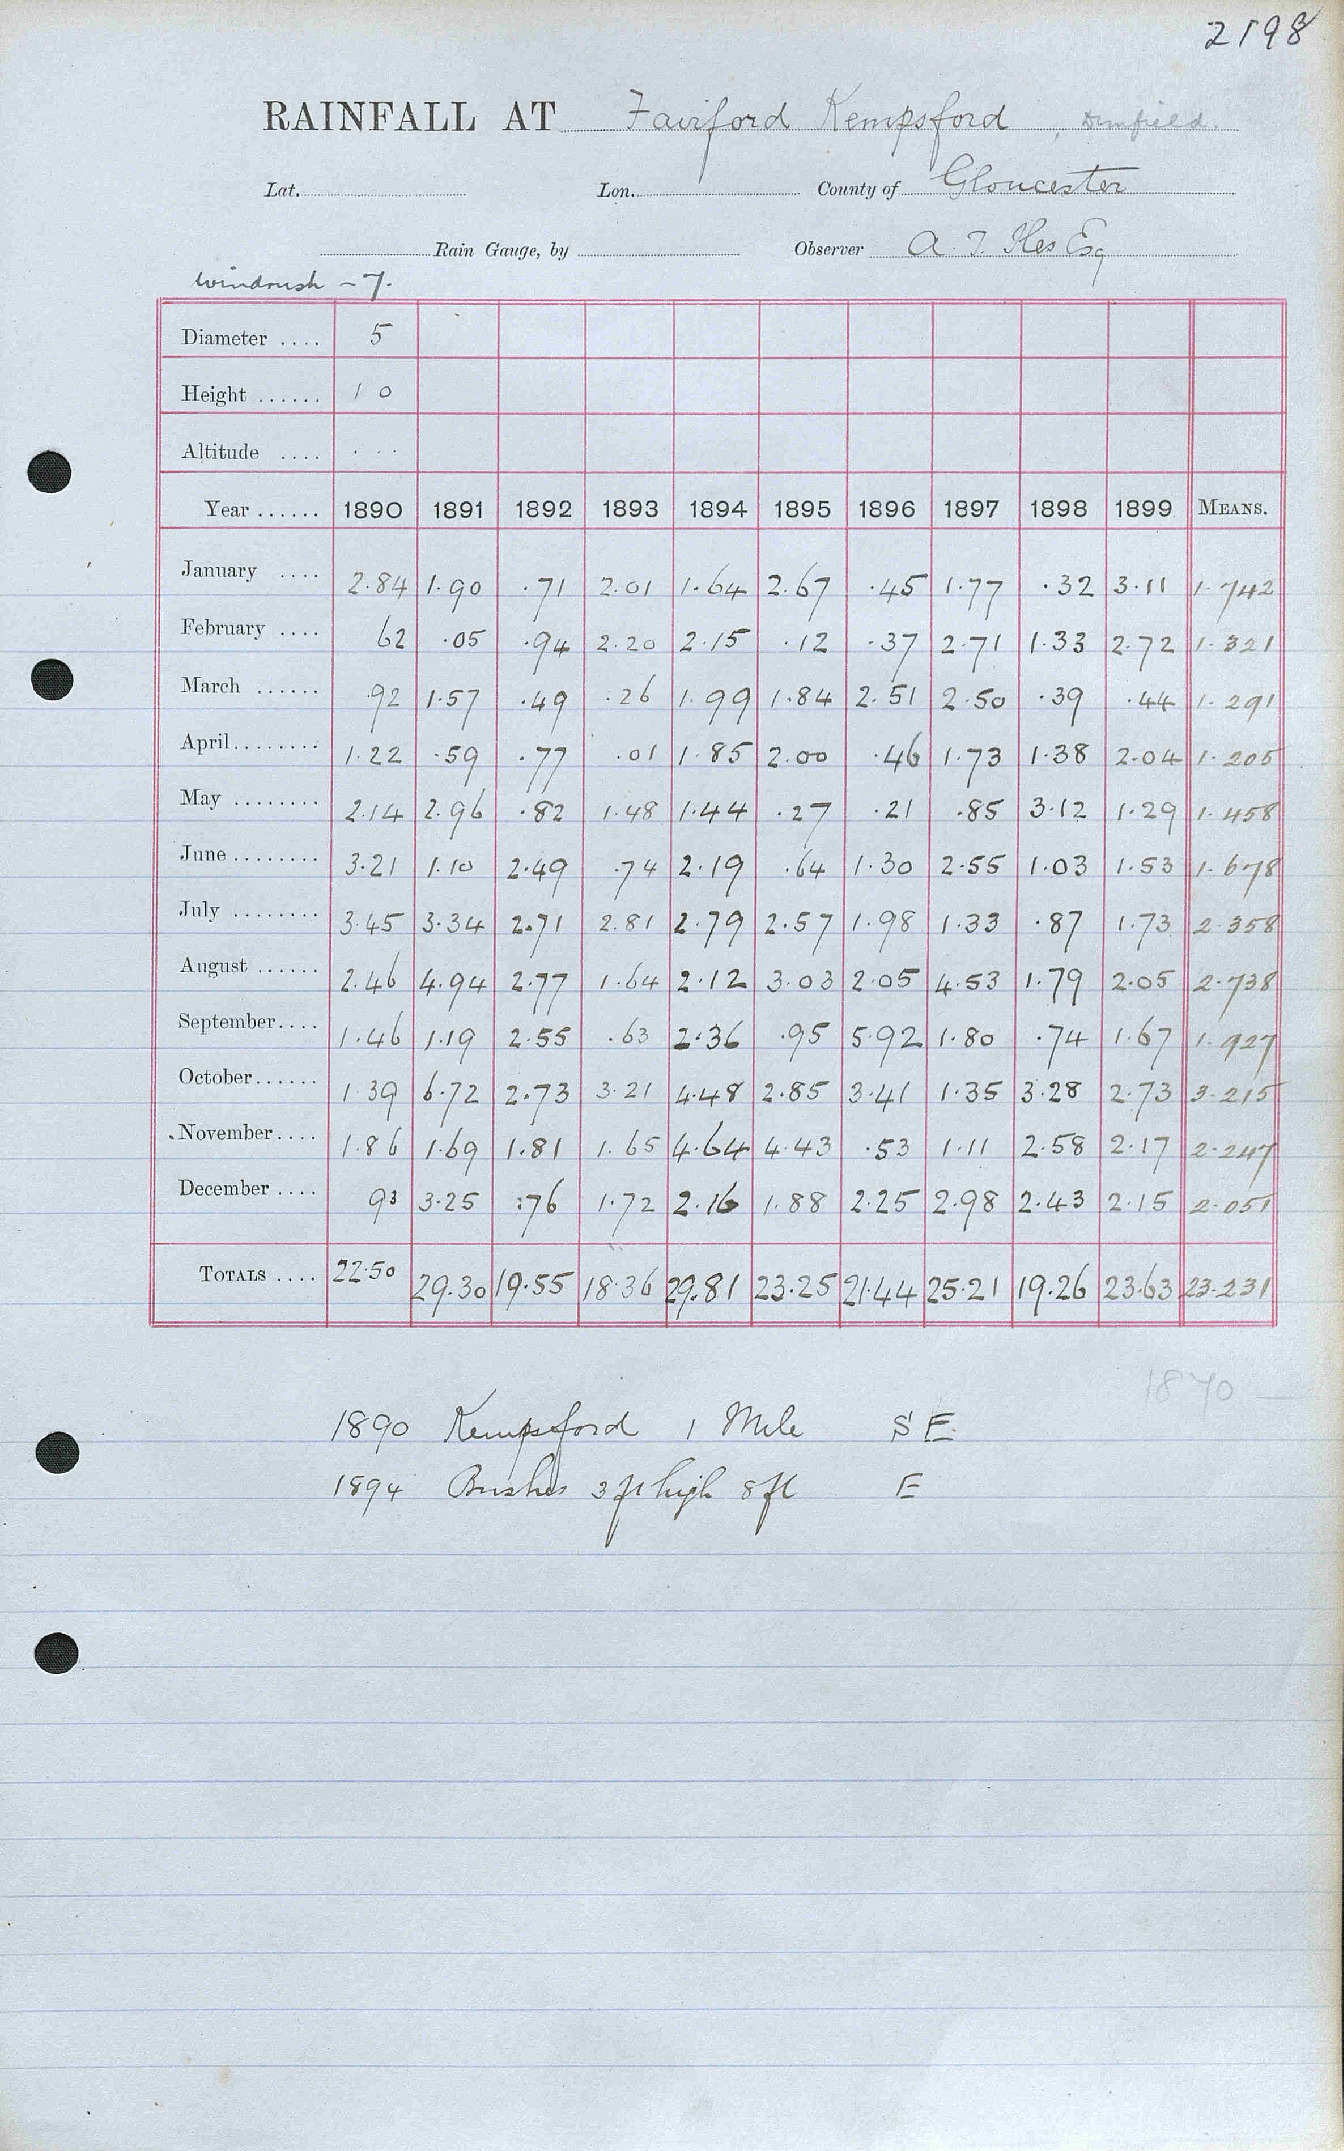 2198
RAINFALL AT Fairford Kempsford
Lat. Lon. County of Gloucester
Rain Gauge, by Observer A. T. Iles Esq
Windrush - 7.
Diameter .... 5
Height ...... 1 0
Altitude .... . . .
Year ...... 1890 1891 1892 1893 1894 1895 1896 1897 1898 1899 MEANS.
January .... 2.84 1.90 .71 2.01 1.64 2.67 .45 1.77 .32 3.11 1.742
February .... 62 .05 .94 2.20 2.15 .12 .37 2.71 1.33 2.72 1.321
March ...... .92 1.57 .49 .26 1.99 1.84 2.51 2.50 .39 .44 1.291
April........ 1.22 .59 .77 .01 1.85 2.00 .46 1.73 1.38 2.04 1.205
May ........ 2.14 2.96 .82 1.48 1.44 .27 .21 .85 3.12 1.29 1.458
June ........ 3.21 1.10 2.49 .74 2.19 .64 1.30 2.55 1.03 1.53 1.678
July ........ 3.45 3.34 2.71 2.81 2.79 2.57 1.98 1.33 .87 1.73 2.358
August ...... 2.46 4.94 2.77 1.64 2.12 3.03 2.05 4.53 1.79 2.05 2.738
September.... 1.46 1.19 2.55 .63 2.36 .95 5.92 1.80 .74 1.67 1.927
October...... 1.39 6.72 2.73 3.21 4.48 2.85 3.41 1.35 3.28 2.73 3.215
November.... 1.86 1.69 1.81 1.65 4.64 4.43 .53 1.11 2.58 2.17 2.247
December .... 93 3.25 .76 1.72 2.16 1.88 2.25 2.98 2.43 2.15 2.051
TOTALS .... 22.50 29.30 19.55 18.36 29.81 23.25 21.44 25.21 19.26 23.63 23.231
1870 —
1890 Kempsford 1 Mile S E
1894 Bushes 3 ft high 8 ft E